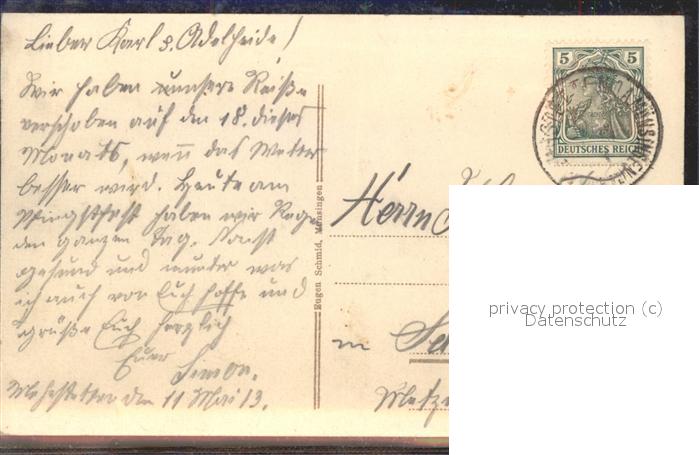 Lieber Karl & Adelheide!
Wir haben unsere Reiße
verschoben auf den 18. dieses
Monats, wenn das Wetter
besser wird. Heute am
Pfingstfest haben wir Regen
den ganzen Tag. Sonst
gesund und munter was
ich auch von Euch hoffe und
grüße Euch herzlich
Euer
Simon.
den 11 Mai 13.
Eugen Schmid, Münsingen
5 5
DEUTSCHES REICH
MÜNSINGEN
Herrn
in
privacy protection (c)
Datenschutz